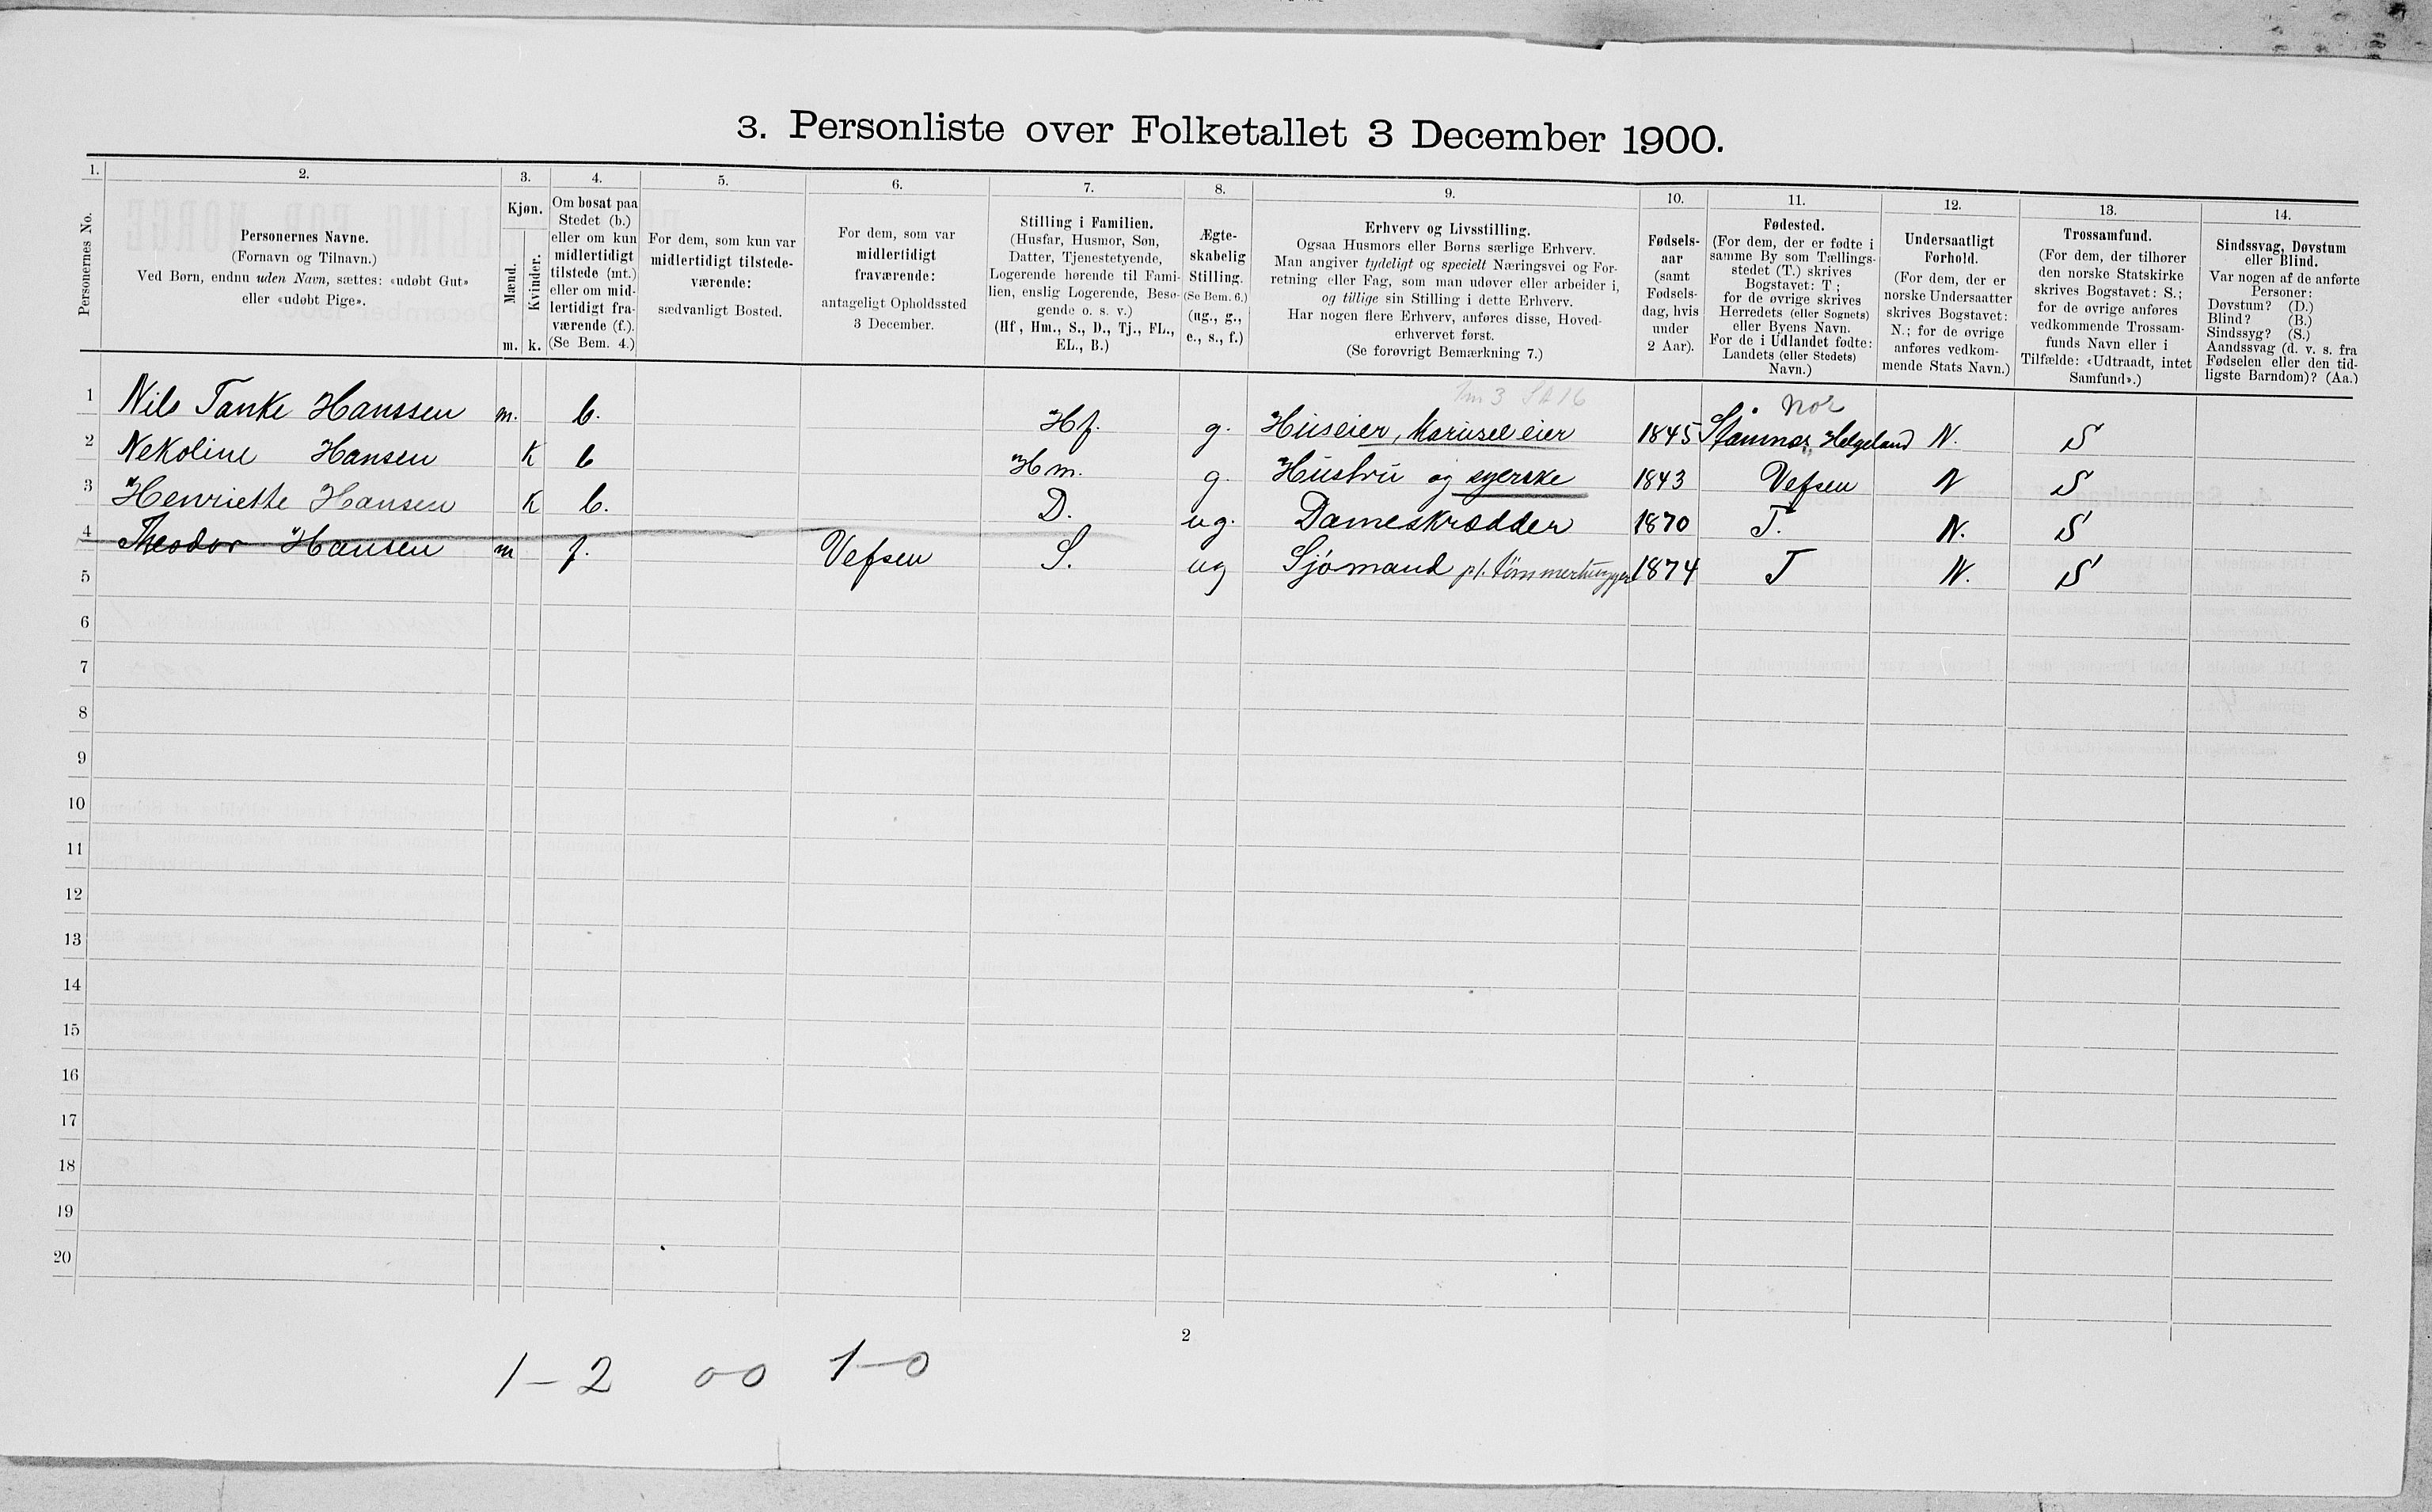 3. Personliste over Folketallet 3 December 1900.
1. 2. 3. 4. 5. 6. 7. 8. 9. 10. 11. 12. 13. 14.
Personernes No.
Personernes Navne.
(Fornavn og Tilnavn.)
Ved Børn, endnu uden Navn, sættes: «udøbt Gut»
eller «udøbt Pige».
Kjøn.
Mænd.
Kvinder.
m. k.
Om bosat paa
Stedet (b.)
eller om kun
midlertidigt
tilstede (mt.)
eller om mid-
lertidigt fra-
værende (f.).
(Se Bem. 4.)
For dem, som kun var
midlertidigt tilstede-
værende:
sædvanligt Bosted.
For dem, som var
midlertidigt
fraværende:
antageligt Opholdssted
3 December.
Stilling i Familien.
(Husfar, Husmor, Søn,
Datter, Tjenestetyende,
Logerende hørende til Fami-
lien, enslig Logerende, Besø-
gende o. s. v.)
(Hf, Hm., S., D., Tj., FL.,
EL., B.)
Ægte-
skabelig
Stilling.
(Se Bem. 6.)
(ug., g.,
e., s., f.)
Erhverv og Livsstilling.
Ogsaa Husmors eller Børns særlige Erhverv.
Man angiver tydeligt og specielt Næringsvei og For-
retning eller Fag, som man udøver eller arbeider i,
og tillige sin Stilling i dette Erhverv.
Har nogen flere Erhverv, anføres disse, Hoved-
erhvervet først.
(Se forøvrigt Bemærkning 7.)
Fødsels-
aar
(samt
Fødsels-
dag, hvis
under
2 Aar).
Fødested.
(For dem, der er fødte i
samme By som Tællings-
stedet (T.) skrives
Bogstavet: T;
for de øvrige skrives
Herredets (eller Sognets)
eller Byens Navn.
For de i Udlandet fødte:
Landets (eller Stedets)
Navn.)
Undersaatligt
Forhold.
(For dem, der er
norske Undersaatter
skrives Bogstavet:
N.; for de øvrige
anføres vedkom-
mende Stats Navn.)
Trossamfund.
(For dem, der tilhører
den norske Statskirke
skrives Bogstavet: S.;
for de øvrige anføres
vedkommende Trossam-
funds Navn eller i
Tilfælde: «Udtraadt, intet
Samfund».)
Sindssvag, Døvstum
eller Blind.
Var nogen af de anførte
Personer:
Døvstum? (D.)
Blind? (B.)
Sindssyg? (S.)
Aandssvag (d. v. s. fra
Fødselen eller den tid-
ligste Barndom)? (Aa.)
Nor
1 Nils Tanke Hanssen m. b. Hf. g. Huseier, Karusel eier 1845 Stamnæs, Helgeland N. S
2 Nekoline Hansen K b Hm. g. Hustru og syerske 1843 Vefsen N S
3 Henriette Hansen K b. D. ug. Dameskrædder 1870 T. N. S
4 Theodor Hansen m f. Vefsen S. ug Sjómand pt. tömmerhugger 1874 T N. S
5
6
7
8
9
10
11
12
13
14
15
16
17
18
19
20
2
1-2 00 1-0